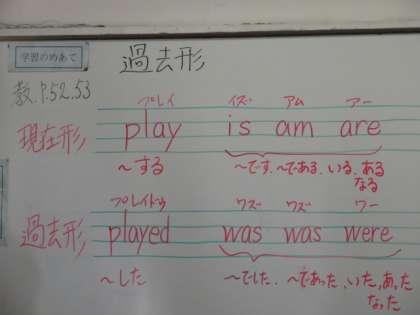 学習のめあて
過去形
教.P.52.53
プレイ イズ アム アー
現在形 play is am are
~する ~です.~である.いる.ある
なる
プレイドゥ ワズ ワズ ワー
過去形 played was was were
~した ~でした.~であった.いた.あった
なった